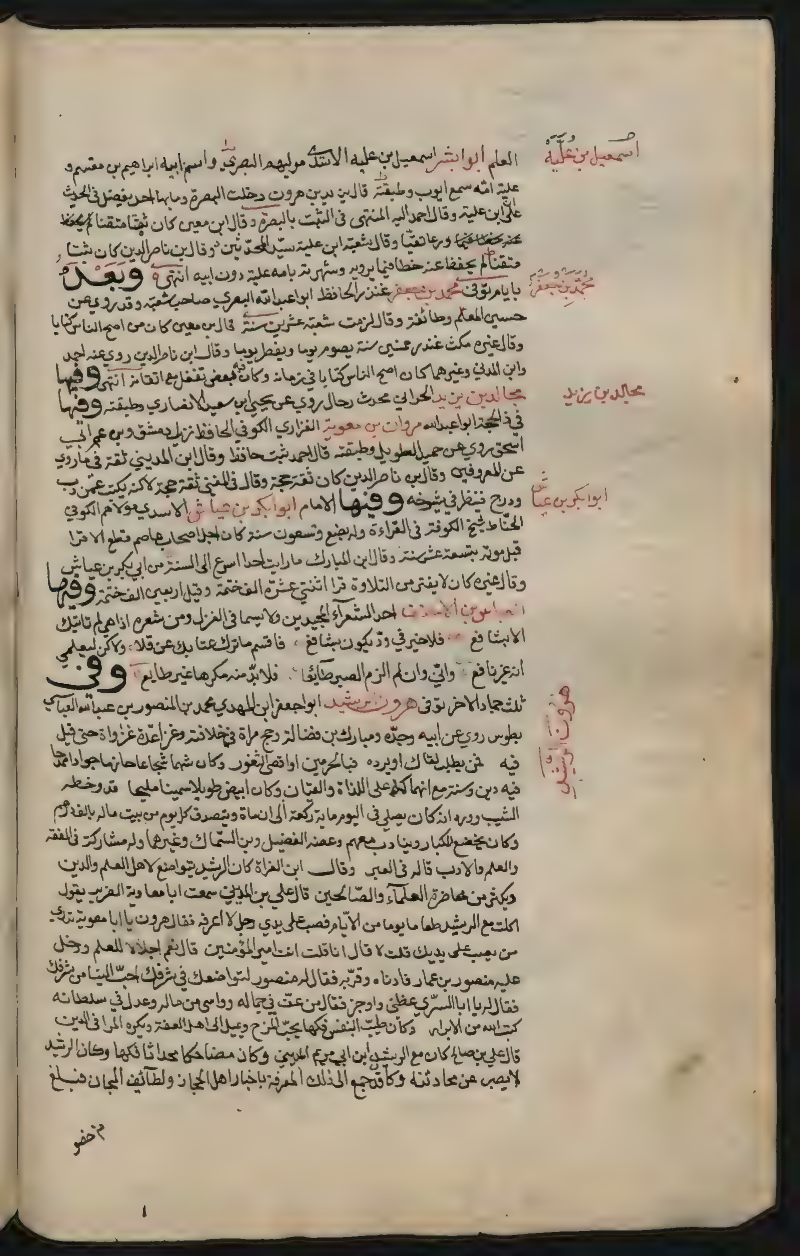 اسمعيل بن علية
العلم أبو بشر اسمعيل بن علية الاسدي موليهم البصري واسم ابيه ابراهيم بن مقسم و
علية امه سمع ايوب وطبقته قال يزيد بن هرون دخلت البصرة وما بها احد يفضل في الحديث
على ابن علية وقال احمد اليه المنتهى في الثبت بالبصرة وقال ابن معين كان ثقة متقنا
ورعا تقيا وقال شعبة ابن علية سيد المحدثين وقال بن ناصر الدين كان ثبتا
متقنا لم يحفظ عنه خطا فيما يرويه وشهرته بامه علية دون ابيه انتهى وبعده
محمد بن جعفر
بايام توفى محمد بن جعفر غندر الحافظ ابو عبد الله البصري صاحب شعبة وقد روى عن
حسين المعلم وطائفة وقال لزمت شعبة عشرين سنة قال بن معين كان من اصح الناس كتابا
وقال غيره مكث غندر خمسين سنة يصوم يوما ويفطر يوما وقال ابن ناصر الدين روى عنه احمد
وابن المديني وغيرهما كان اصح الناس كتابا في زمانه وكان فيه بعض تغفل مع اتقانه انتهى وفيها
مخالد بن يزيد
مخالد بن يزيد الحراني محدث رحال روى عن يحيى بن سعيد الانصاري وطبقته وفيها
في ذي الحجة ابو عبد الله مروان بن معوية الفزاري الكوفي الحافظ نزيل دمشق وبن عم ابي
اسحق روى عن حميد الطويل وطبقته قال احمد ثبت حافظ وقال ابن المديني ثقة في ما روى
عن المعروفين وقال بن ناصر الدين كان ثقة حجة وقال في المغني ثقة حجة لاكنه يكتب عمن دب
ابو بكر بن عياش
ودرج فينظر في شيوخه وفيها الامام ابو بكر بن عياش الاسدي مولاهم الكوفي
الحناط شيخ الكوفة في القراءة وله بضع وتسعون سنة كان اجل اصحاب عاصم قطع الاقرا
قبل موته بتسعة عشر سنة وقال ابن المبارك ما رايت احدا اسرع الى السنة من ابي بكر بن عياش
وقال غيره كان لا يفتر من التلاوة قرا اثنتي عشرة الف ختمة وقيل اربعين الف ختمة وفيها
العباس بن الاحنف احد الشعرآء المجيدين ولا سيما في الغزل ومن شعره اذا هي لم تاتيك
الا بشافع فلا خير في ود يكون بشافع فاقسم ما تركي عتابك عن قلا ولاكن لعلمي
انه غير نافع واني وان لم الزم الصبر طايعا فلا بد منه مكرها غير طايع وفى
هرون الرشيد
ثلث جماد الاخر توفى هرون الرشيد ابو جعفر ابن المهدي محمد بن المنصور بن عبد الله العباسي
بطوس روى عن ابيه وجده ومبارك بن فضالة وحج مراة في خلافته وغزا عدة غزواة حتى قيل
فيه فمن يطلب لقاك او يرده فبالحرمين او اقصى الثغور وكان شهما شجاعا حازما جوادا ممدحا
فيه دين وسنة مع انهماكه على اللذاة والقيان وكان ابيض طويلا سمينا مليحا قد وخطه
الشيب وورد انه كان يصلي في اليوم ماية ركعة الى ان ماة ويتصدق كل يوم من بيت ماله بالف درهم
وكان يخضع للكبار ويتادب معهم وعضه الفضيل وبن السماك وغيرهما وله مشاركة في الفقه
والعلم والادب قاله في العبر وقال ابن الفراة كان الرشيد يتواضع لاهل العلم والدين
ويكثر من محاضرة العلمآء والصالحين قال علي بن المديني سمعت ابا معاوية الضرير يقول
اكلت مع الرشيد طعاما يوما من الايام فصب على يدي رجل لا اعرفه فقال هرون يا ابا معوية تدري
من يصب على يديك قلت لا قال انا قلت انت امير المؤمنين قال نعم اجلالا للعلم ودخل
عليه منصور بن عمار فادناه وقربه فقال له منصور لتواضعك في شرفك احب الينا من شرفك
فقال له يا ابا السري عظني واوجز فقال من عف في جماله وواسى من ماله وعدل في سلطانه
كتب الله من الابرار وكان طيب النفس فكها يحب المزح ويميل الى اهل العفة ويكره المرا في الدين
قال علي بن صالح كان مع الرشيد ابن ابي مريم المديني وكان مضاحكا محداثا فكها وكان الرشيد
لا يصبر عن محادثته وكان قد جمع الى ذلك المعرفة باخبار اهل الحجاز ولطايف المجان فبلغ
من